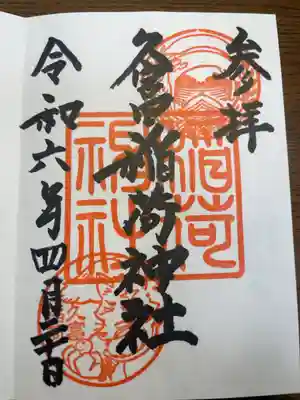 参拝
久富稲荷神社
令和六年四月二十日
稲荷
神社